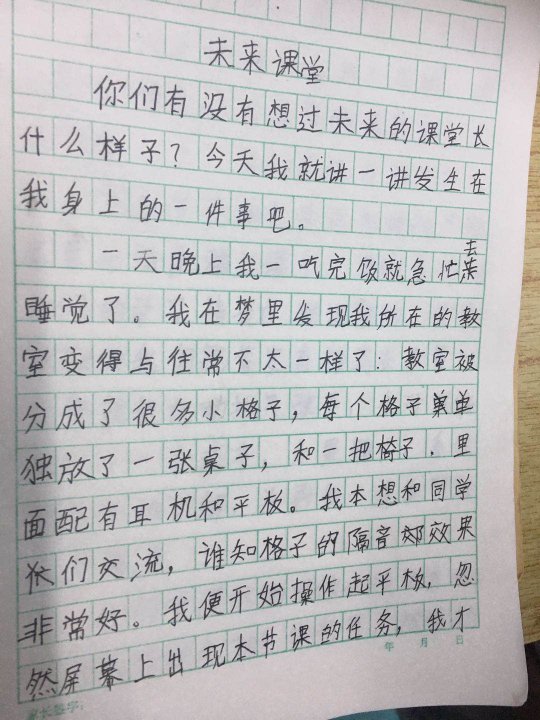 未来课堂
你们有没有想过未来的课堂长
什么样子？今天我就讲一讲发生在
我身上的一件事吧。
一天晚上我一吃完饭就急忙去
睡觉了。我在梦里发现我所在的教
室变得与往常不太一样了：教室被
分成了很多小格子，每个格子单单
独放了一张桌子，和一把椅子．里
面配有耳机和平板。我本想和同学
们交流，谁知格子的隔音效果
非常好。我便开始操作起平板，忽
然屏幕上出现本节课的任务，我才
年 月 日
家长签字：